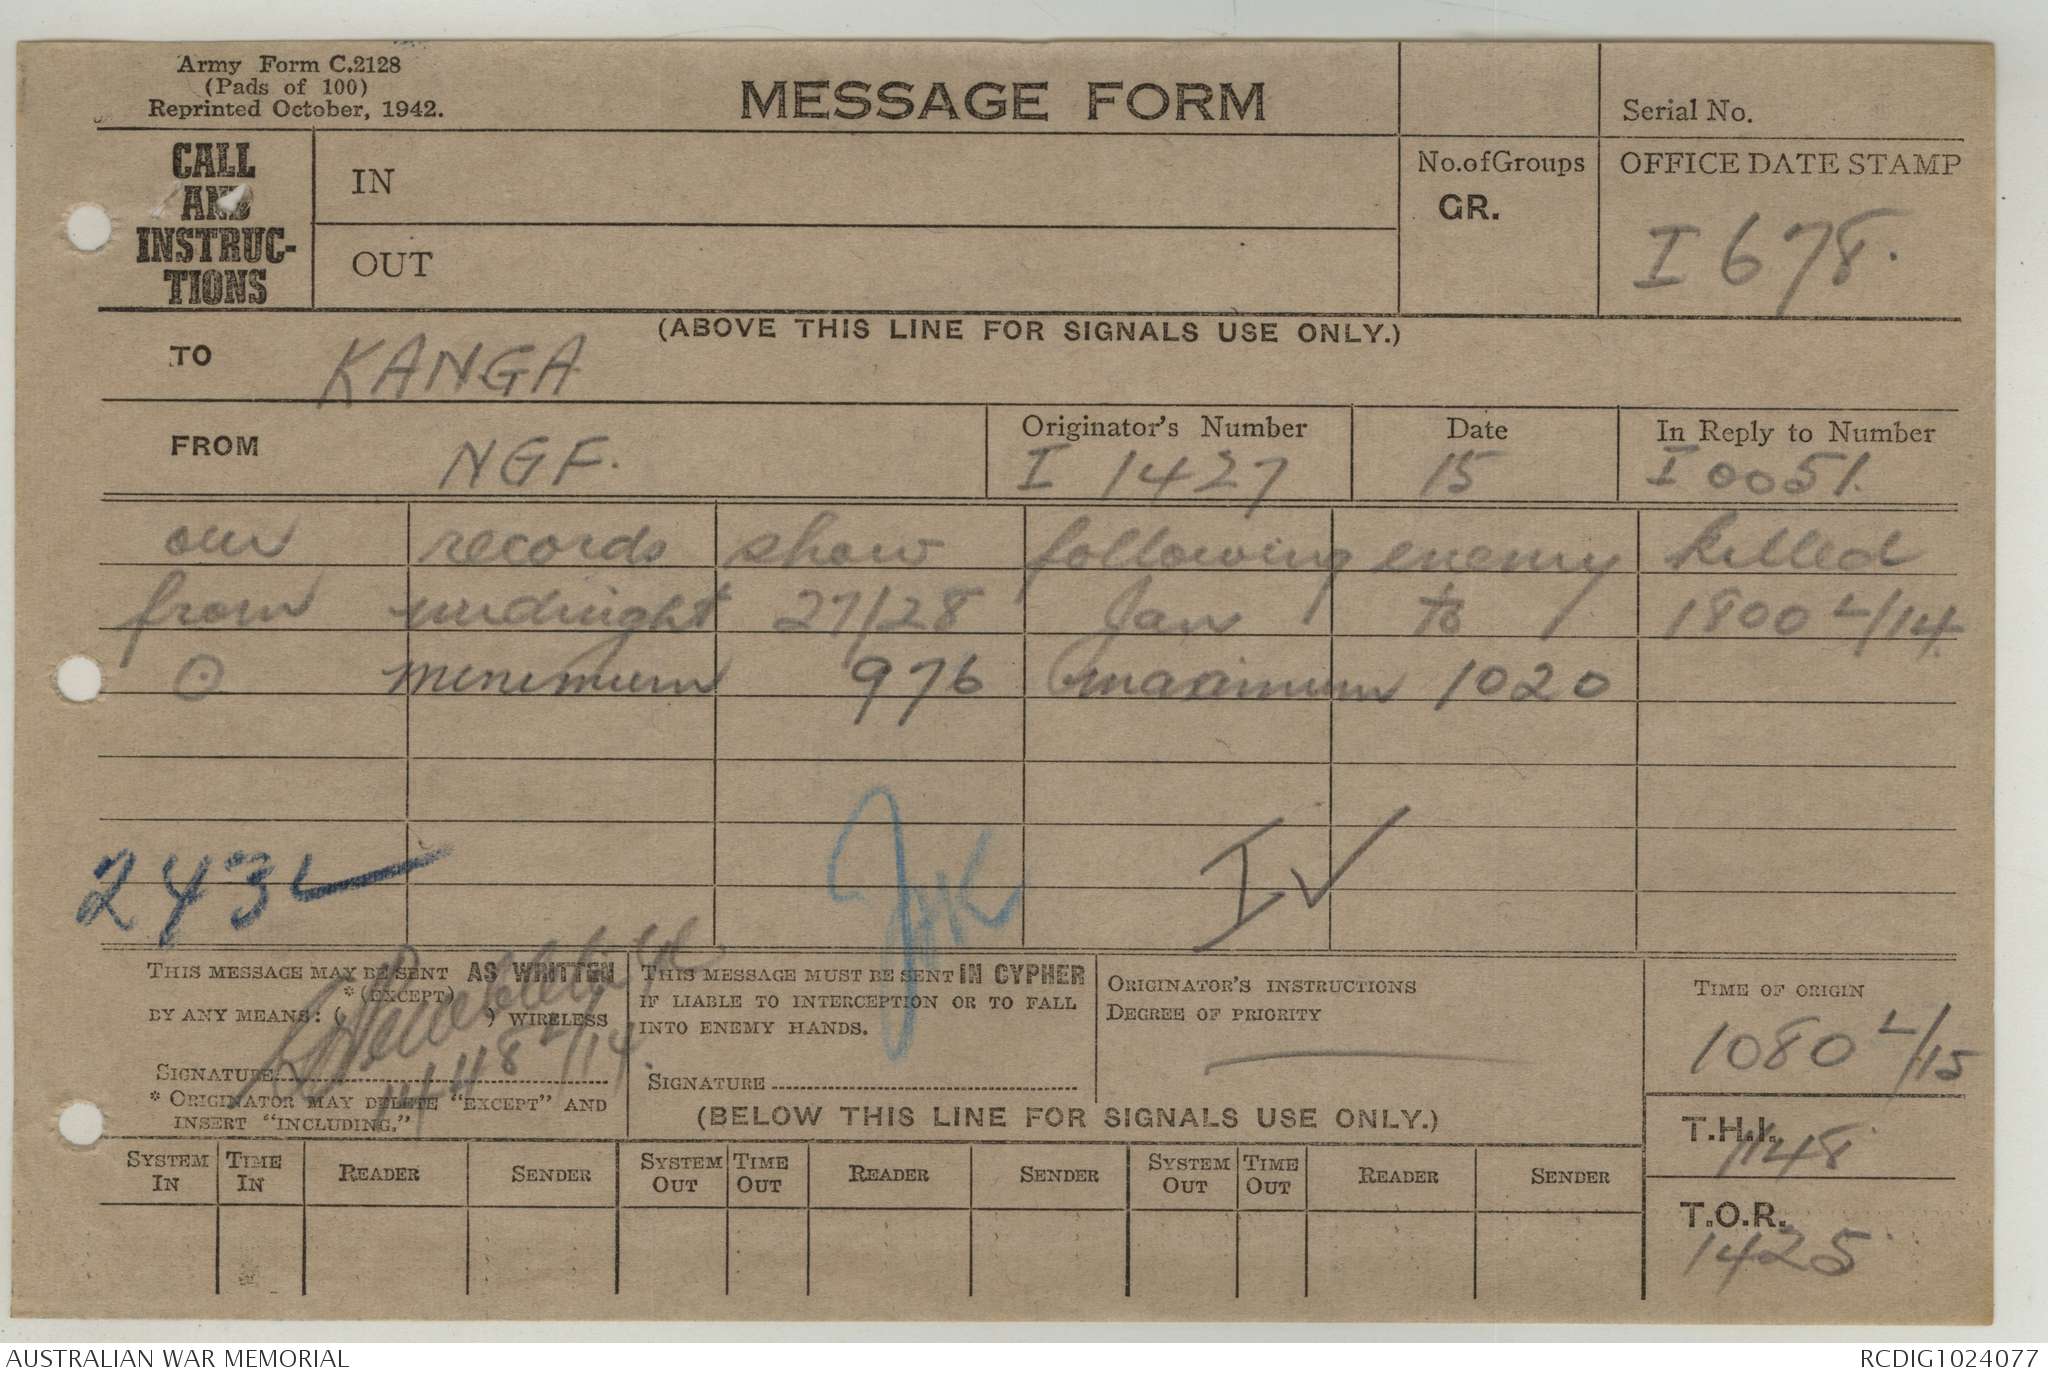 Army Form C.2128
(Pads of 100)
Reprinted October, 1942.
MESSAGE FORM
Serial No.
CALL AND INSTRUC-TIONS
IN
OUT
No. of Groups
GR.
OFFICE DATE STAMP
I 678.
(ABOVE THIS LINE FOR SIGNALS USE ONLY.)
TO KANGA
FROM NGF.
Originator's Number
I 1427
Date
15
In Reply to Number
I 0051.
our records show following enemy killed
from midnight 27/28 Jan to 1800 L/14
⊙ minimum 976 maximum 1020
243
JHK
I ✓
THIS MESSAGE MAY BE SENT AS WRITTEN
* (EXCEPT)
BY ANY MEANS: ( ) WIRELESS
SIGNATURE
1448 L/14.
* ORIGINATOR MAY DELETE "EXCEPT" AND
INSERT "INCLUDING."
THIS MESSAGE MUST BE SENT IN CYPHER
IF LIABLE TO INTERCEPTION OR TO FALL
INTO ENEMY HANDS.
SIGNATURE
ORIGINATOR'S INSTRUCTIONS
DEGREE OF PRIORITY
TIME OF ORIGIN
1080 L/15
T.H.I.
1148
T.O.R.
1425
(BELOW THIS LINE FOR SIGNALS USE ONLY.)
SYSTEM IN TIME IN READER SENDER SYSTEM OUT TIME OUT READER SENDER SYSTEM OUT TIME OUT READER SENDER
AUSTRALIAN WAR MEMORIAL
RCDIG1024077